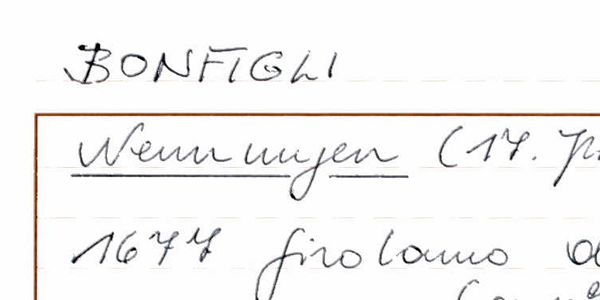 BONFIGLI
Nennungen (17.
1677 Girolamo